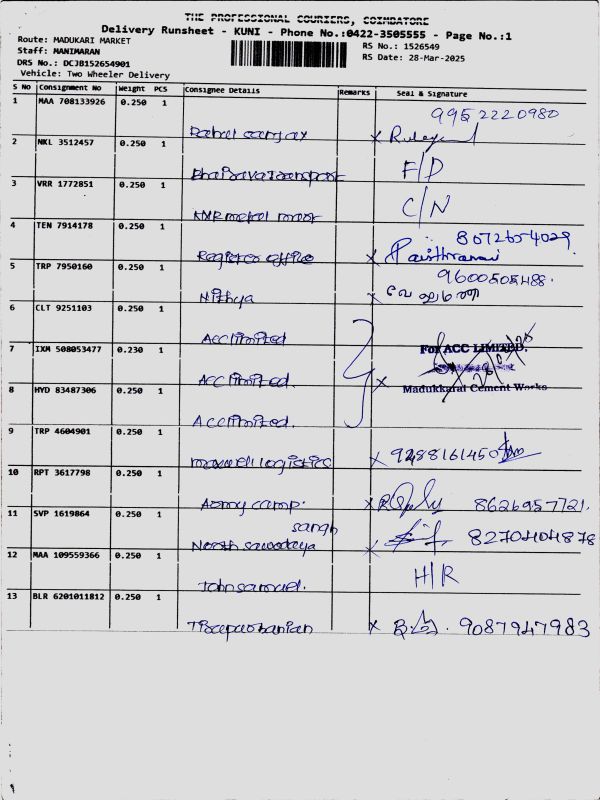 THE PROFESSIONAL COURIERS, COIMBATORE
Delivery Runsheet - KUNI - Phone No.:0422-3505555 - Page No.:1
Route: MADUKARI MARKET
RS No.: 1526549
Staff: MANIMARAN
RS Date: 28-Mar-2025
DRS No.: DCJB152654901
Vehicle: Two Wheeler Delivery
S No Consignment No Weight PCS Consignee Details Remarks Seal & Signature
1 MAA 708133926 0.250 1 9952220980
2 NKL 3512457 0.250 1 F/D
3 VRR 1772851 0.250 1 C/N
4 TEN 7914178 0.250 1 office 8072654029
5 TRP 7950160 0.250 1 Nithya 9600505488.
6 CLT 9251103 0.250 1 Acc limited
7 IXM 508053477 0.230 1 Acc limited. For ACC LIMITED,
8 HYD 83487306 0.250 1 Acc limited. Madukkarai Cement Works
9 TRP 4604901 0.250 1 logistics 9288161450
10 RPT 3617798 0.250 1 Army camp. 8626957721.
11 SVP 1619864 0.250 1 North sarvodaya sangh 8270404878
12 MAA 109559366 0.250 1 John samuel. H/R
13 BLR 6201011812 0.250 1 9087947983